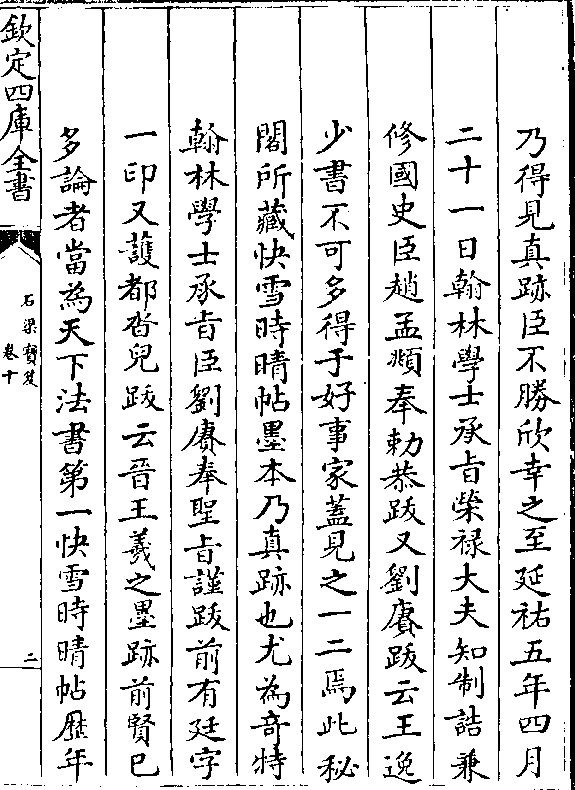 乃得見真跡臣不勝欣幸之至延祐五年四月
二十一日翰林學士承㫖榮禄大夫知制誥兼
修國史臣趙孟頫奉勅恭跋又劉賡跋云王逸
少書不可多得于好事家蓋見之一二焉此秘
閣所藏快雪時晴帖墨本乃真跡也尤為竒特
翰林學士承㫖臣劉賡奉聖㫖謹跋前有廷字
一印又護都㳫兒跋云晉王羲之墨跡前賢已
多論者當為天下法書第一快雪時晴帖歴年
欽定四庫全書
石渠寳笈
卷十
二